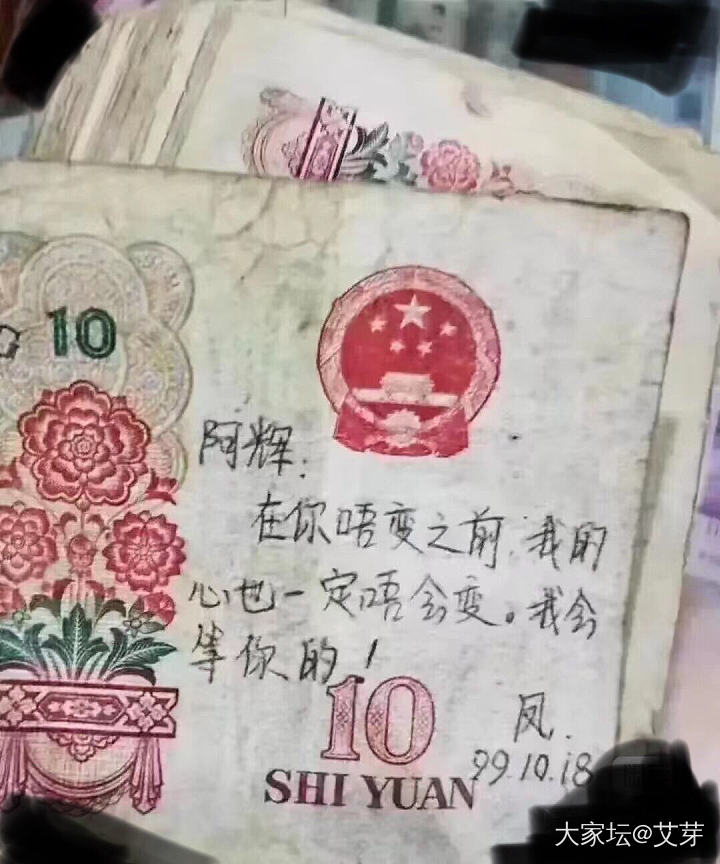 10
阿辉:
在你唔变之前,我的
心也一定唔会变。我会
等你的!
10
SHI YUAN
凤.
99.10.18
大家坛@艾芽